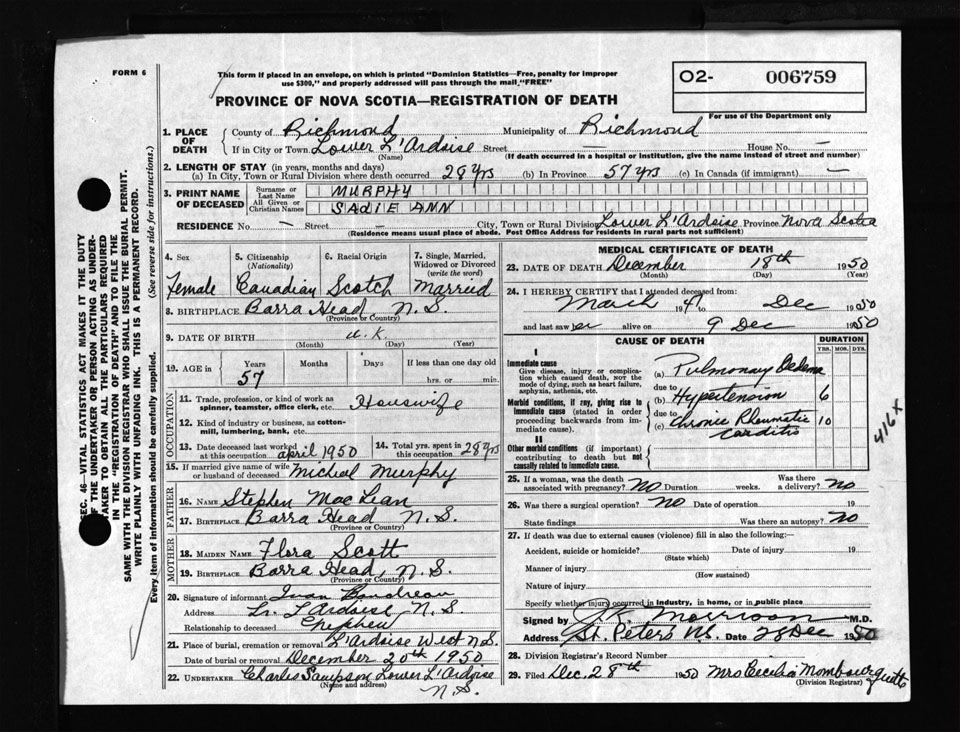 FORM 6
This form if placed in an envelope, on which is printed "Dominion Statistics—Free, penalty for improper
use $300," and properly addressed will pass through the mail "FREE"
O2- 006759
For use of the Department only
PROVINCE OF NOVA SCOTIA—REGISTRATION OF DEATH
1. PLACE OF DEATH
County of Richmond Municipality of Richmond
If in City or Town Lower L'Ardoise Street — House No. —
(Name) (If death occurred in a hospital or institution, give the name instead of street and number)
2. LENGTH OF STAY (in years, months and days)
(a) In City, Town or Rural Division where death occurred 28 yrs (b) In Province 57 yrs (c) In Canada (if immigrant) —
3. PRINT NAME OF DECEASED
Surname or Last Name MURPHY
All Given or Christian Names SADIE ANN
RESIDENCE No. — Street — City, Town or Rural Division Lower L'Ardoise Province Nova Scotia
(Residence means usual place of abode. Post Office Address for residents in rural parts not sufficient)
4. Sex
Female
5. Citizenship (Nationality)
Canadian
6. Racial Origin
Scotch
7. Single, Married, Widowed or Divorced (write the word)
Married
8. BIRTHPLACE Barra Head N.S.
(Province or Country)
9. DATE OF BIRTH u.k.
(Month) (Day) (Year)
10. AGE in Years Months Days If less than one day old
57 hrs. or min.
OCCUPATION
11. Trade, profession or kind of work as spinner, teamster, office clerk, etc. Housewife
12. Kind of industry or business, as cotton-mill, lumbering, bank, etc.
13. Date deceased last worked at this occupation april 1950
14. Total yrs. spent in this occupation 28 yrs
15. If married give name of wife or husband of deceased Micheal Murphy
FATHER
16. NAME Stephen MacLean
17. BIRTHPLACE Barra Head N.S.
(Province or Country)
MOTHER
18. MAIDEN NAME Flora Scott
19. BIRTHPLACE Barra Head, N.S.
(Province or Country)
20. Signature of informant
Address Lr. L'Ardoise, N.S.
Relationship to deceased nephew
21. Place of burial, cremation or removal L'Ardoise West N.S.
Date of burial or removal December 20th 1950
22. UNDERTAKER Charles Sampson Lower L'Ardoise
(Name and address) N.S.
MEDICAL CERTIFICATE OF DEATH
23. DATE OF DEATH December 18th 1950
(Month) (Day) (Year)
24. I HEREBY CERTIFY that I attended deceased from:
March 47 Dec 1950
and last saw er alive on 9 Dec 1950
CAUSE OF DEATH
DURATION
YRS. MOS. DYS.
I
Immediate cause
Give disease, injury or complication which caused death, not the mode of dying, such as heart failure, asphyxia, asthenia, etc.
(a) Pulmonary Oedema
due to
Morbid conditions, if any, giving rise to immediate cause (stated in order proceeding backwards from immediate cause).
(b) Hypertension 6
due to
(c) Chronic Rheumatic Carditis 10
416X
II
Other morbid conditions (if important) contributing to death but not causally related to immediate cause.
25. If a woman, was the death associated with pregnancy? NO Duration weeks. Was there a delivery? NO
26. Was there a surgical operation? NO Date of operation 19
State findings Was there an autopsy? NO
27. If death was due to external causes (violence) fill in also the following:—
Accident, suicide or homicide? Date of injury 19
(State which)
Manner of injury
(How sustained)
Nature of injury
Specify whether injury occurred in industry, in home, or in public place
Signed by Morrison M.D.
Address St. Peters N.S. Date 28 Dec 1950
28. Division Registrar's Record Number
29. Filed Dec. 28th 1950 Mrs Cecilia Mombourquette
(Division Registrar)
SEC. 46—VITAL STATISTICS ACT MAKES IT THE DUTY
OF THE UNDERTAKER OR PERSON ACTING AS UNDER-
TAKER TO OBTAIN ALL THE PARTICULARS REQUIRED
IN THE "REGISTRATION OF DEATH" AND TO FILE THE
SAME WITH THE DIVISION REGISTRAR WHO SHALL ISSUE THE BURIAL PERMIT.
WRITE PLAINLY WITH UNFADING INK. THIS IS A PERMANENT RECORD.
Every item of information should be carefully supplied. (See reverse side for instructions.)